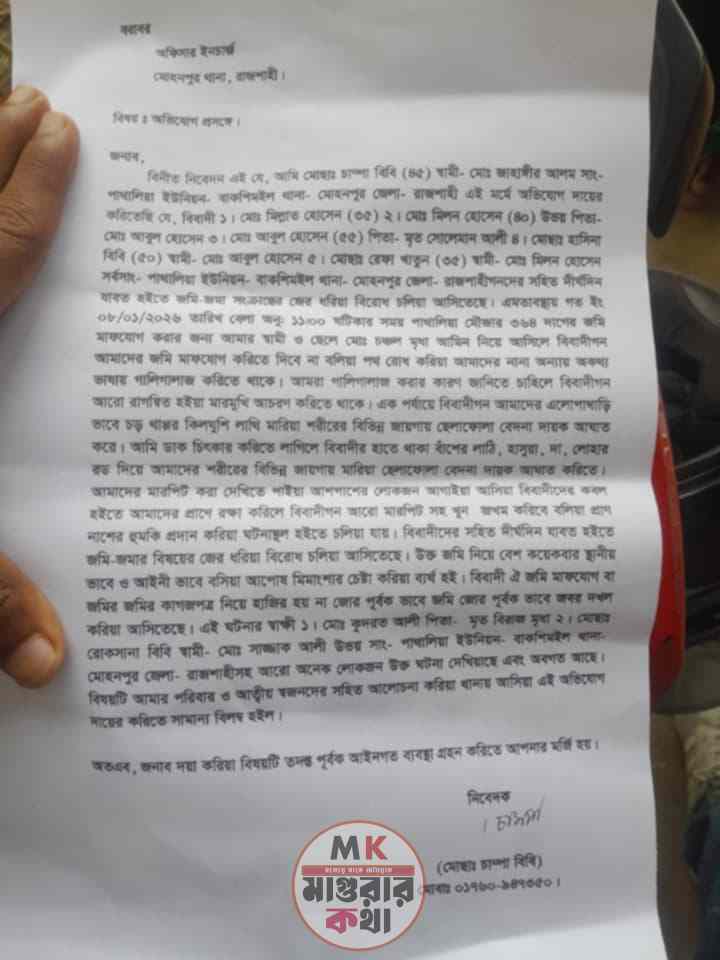 বরাবর
অফিসার ইনচার্জ
মোহনপুর থানা, রাজশাহী।
বিষয় ঃ অভিযোগ প্রসঙ্গে।
জনাব,
বিনীত নিবেদন এই যে, আমি মোছাঃ চাম্পা বিবি (৪৫) স্বামী- মোঃ জাহাঙ্গীর আলম সাং-
পাথালিয়া ইউনিয়ন- বাকশিমইল থানা- মোহনপুর জেলা- রাজশাহী এই মর্মে অভিযোগ দায়ের
করিতেছি যে, বিবাদী ১। মোঃ মিল্লাত হোসেন (৩৫) ২। মোঃ মিলন হোসেন (৪০) উভয় পিতা-
মোঃ আবুল হোসেন ৩। মোঃ আবুল হোসেন (৫৫) পিতা- মৃত সোলেমান আলী ৪। মোছাঃ হাসিনা
বিবি (৫০) স্বামী- মোঃ আবুল হোসেন ৫। মোছাঃ রেফা খাতুন (৩৫) স্বামী- মোঃ মিলন হোসেন
সর্বসাং- পাথালিয়া ইউনিয়ন- বাকশিমইল থানা- মোহনপুর জেলা- রাজশাহীগনদের সহিত দীর্ঘদিন
যাবত হইতে জমি-জমা সংক্রান্তের জের ধরিয়া বিরোধ চলিয়া আসিতেছে। এমতাবস্থায় গত ইং
০৮/০১/২০২৬ তারিখ বেলা অনুঃ ১১:০০ ঘটিকার সময় পাথালিয়া মৌজার ৩৬৪ দাগের জমি
মাফযোগ করার জন্য আমার স্বামী ও ছেলে মোঃ চঞ্চল মৃধা আমিন নিয়ে আসিলে বিবাদীগন
আমাদের জমি মাফযোগ করিতে দিবে না বলিয়া পথ রোধ করিয়া আমাদের নানা অন্যায় অকথ্য
ভাষায় গালিগালাজ করিতে থাকে। আমরা গালিগালাজ করার কারণ জানিতে চাহিলে বিবাদীগন
আরো রাগান্বিত হইয়া মারমুখি আচরণ করিতে থাকে। এক পর্যায়ে বিবাদীগন আমাদের এলোপাথাড়ি
ভাবে চড় থাপ্পর কিলঘুশি লাথি মারিয়া শরীরের বিভিন্ন জায়গায় ছেলাফোলা বেদনা দায়ক আঘাত
করে। আমি ডাক চিৎকার করিতে লাগিলে বিবাদীর হাতে থাকা বাঁশের লাঠি, হাসুয়া, দা, লোহার
রড দিয়ে আমাদের শরীরের বিভিন্ন জায়গায় মারিয়া ছেলাফোলা বেদনা দায়ক আঘাত করিতে।
আমাদের মারপিট করা দেখিতে পাইয়া আশপাশের লোকজন আগাইয়া আসিয়া বিবাদীদের কবল
হইতে আমাদের প্রাণে রক্ষা করিলে বিবাদীগন আরো মারপিট সহ খুন জখম করিবে বলিয়া প্রাণ
নাশের হুমকি প্রদান করিয়া ঘটনাস্থল হইতে চলিয়া যায়। বিবাদীদের সহিত দীর্ঘদিন যাবত হইতে
জমি-জমার বিষয়ের জের ধরিয়া বিরোধ চলিয়া আসিতেছে। উক্ত জমি নিয়ে বেশ কয়েকবার স্থানীয়
ভাবে ও আইনী ভাবে বসিয়া আপোষ মিমাংশার চেষ্টা করিয়া ব্যর্থ হই। বিবাদী ঐ জমি মাফযোগ বা
জমির জমির কাগজপত্র নিয়ে হাজির হয় না জোর পূর্বক ভাবে জমি জোর পূর্বক ভাবে জবর দখল
করিয়া আসিতেছে। এই ঘটনার স্বাক্ষী ১। মোঃ কুদরত আলী পিতা- মৃত বিরাজ মৃধা ২। মোছাঃ
রোকসানা বিবি স্বামী- মোঃ সাজ্জাক আলী উভয় সাং- পাথালিয়া ইউনিয়ন- বাকশিমইল থানা-
মোহনপুর জেলা- রাজশাহীসহ আরো অনেক লোকজন উক্ত ঘটনা দেখিয়াছে এবং অবগত আছে।
বিষয়টি আমার পরিবার ও আত্বীয় স্বজনদের সহিত আলোচনা করিয়া থানায় আসিয়া এই অভিযোগ
দায়ের করিতে সামান্য বিলম্ব হইল।
অতএব, জনাব দয়া করিয়া বিষয়টি তদন্ত পূর্বক আইনগত ব্যবস্থা গ্রহন করিতে আপনার মর্জি হয়।
নিবেদক
চাম্পা
(মোছাঃ চাম্পা বিবি)
মোবাঃ ০১৭৬০-৯৪৭৩৫০।
MK
মাগুরার
কথা